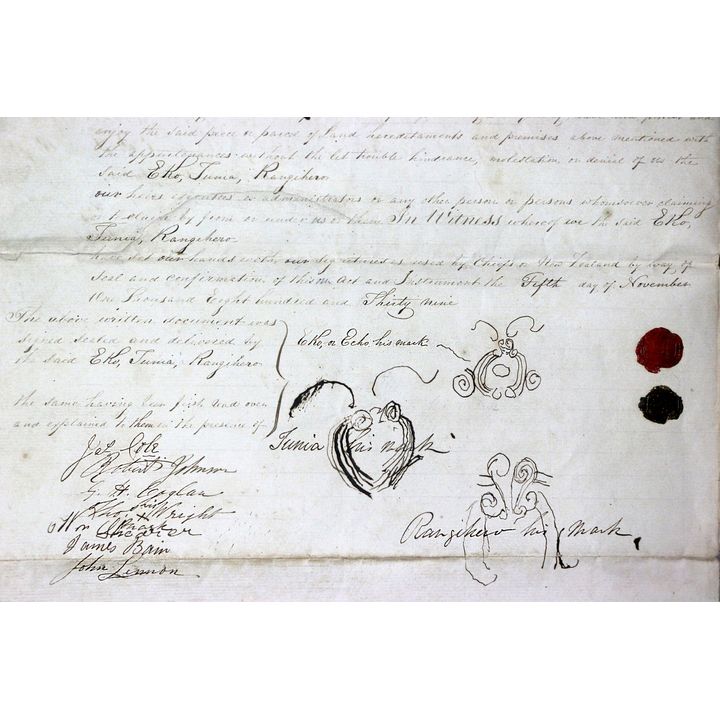 enjoy the said piece or parcel of Land hereditaments and premises above mentioned with
the appurtenances without the let trouble hindrance, molestation or denial of us the
said EKo, Tunia, Rangihero
our heirs executors or administrators or any other person or persons whomsoever claiming
or to claim by from or under us or them In Witness whereof we the said EKo,
Tunia, Rangihero
have set our hands with our signatures as used by Chiefs of New Zealand by way of
Seal and confirmation of this Act and Instrument the Fifth day of November
One Thousand Eight hundred and Thirty nine
The above written document was
signed sealed and delivered by
the said EKo, Tunia, Rangihero
EKo, or Echo, his mark
the same having been first read over
and explained to them in the presence of
Tunia his mark
Jas Cole
Robert Johnson
G. H. Coglan
Wright
Rangihero his mark
James Bain
John Lennon